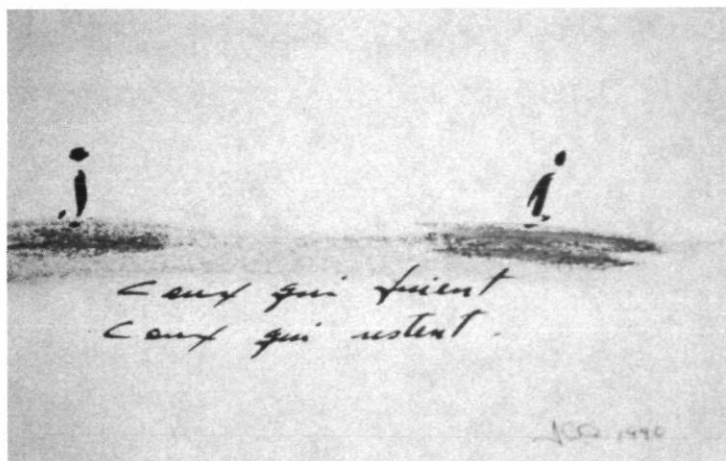 Ceux qui fuient
Ceux qui restent.
1990